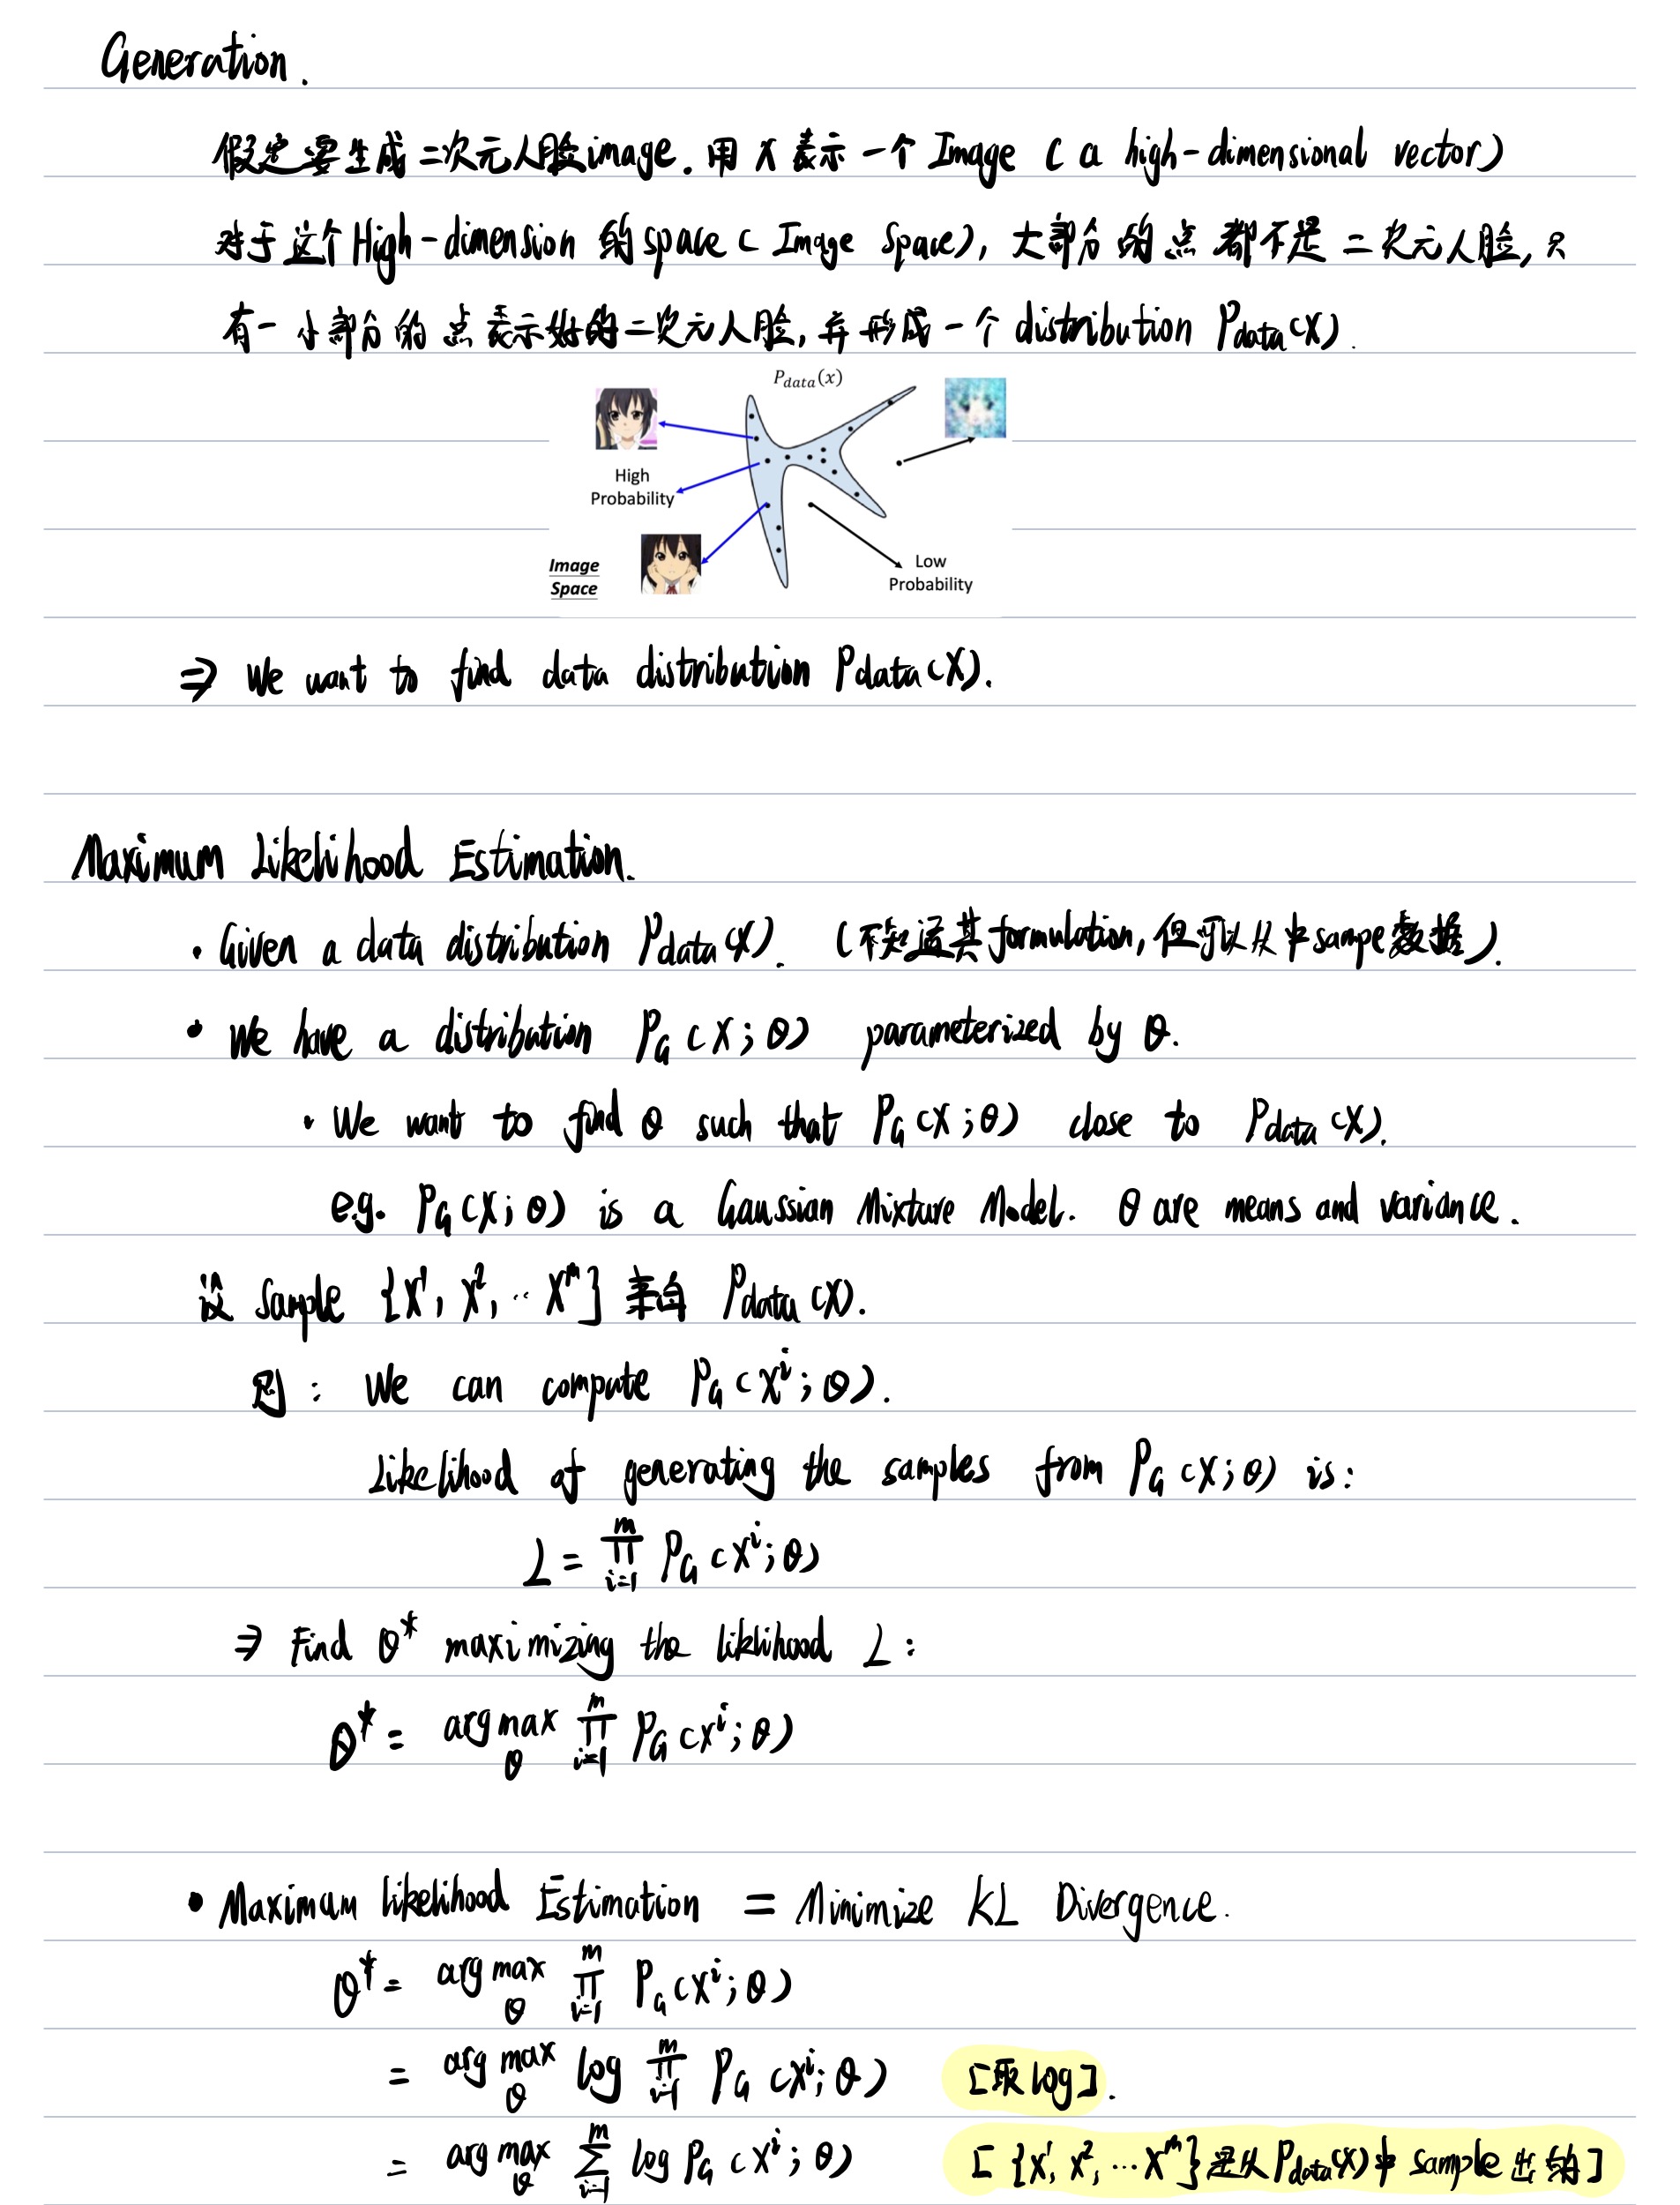 Generation.
假定要生成二次元人脸image. 用 X 表示一个 Image ( a high-dimensional vector)
对于这个High-dimension 的space ( Image Space), 大部分的点都不是二次元人脸, 只
有一小部分的点表示好的二次元人脸, 并形成一个 distribution Pdata(X).
P_data(x)
High
Probability
Image
Space
Low
Probability
⇒ We want to find data distribution Pdata(X).
Maximum Likelihood Estimation.
· Given a data distribution Pdata(X). (不知道其formulation, 但可以从中sampe数据).
· We have a distribution PG(X;θ) parameterized by θ.
· We want to find θ such that PG(X;θ) close to Pdata(X).
e.g. PG(X;θ) is a Gaussian Mixture Model. θ are means and variance.
设 Sample {X¹, X², ·· Xᵐ} 来自 Pdata(X).
则: We can compute PG(Xⁱ;θ).
Likelihood of generating the samples from PG(X;θ) is:
L = ∏_{i=1}^{m} PG(Xⁱ;θ)
⇒ Find θ* maximizing the liklihood L:
θ* = arg max_θ ∏_{i=1}^{m} PG(Xⁱ;θ)
· Maximum Likelihood Estimation = Minimize KL Divergence.
θ* = arg max_θ ∏_{i=1}^{m} PG(Xⁱ;θ)
= arg max_θ log ∏_{i=1}^{m} PG(Xⁱ;θ) [取log].
= arg max_θ ∑_{i=1}^{m} log PG(Xⁱ;θ) [ {X¹, X², ···Xᵐ}是从Pdata(X)中 sample 出的]